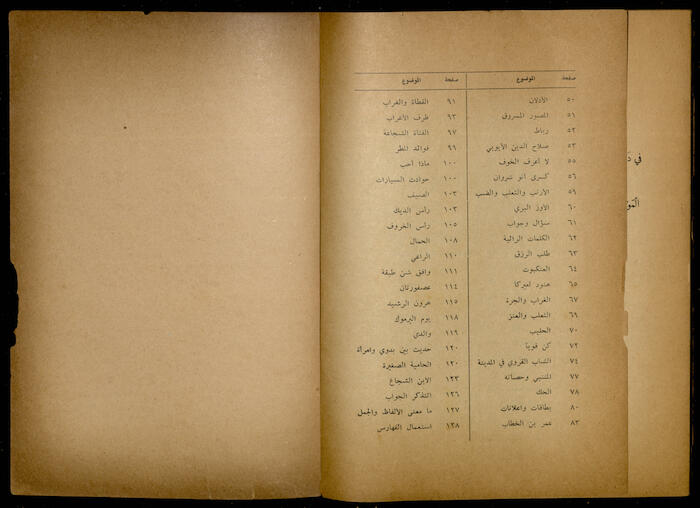 صفحة الموضوع
٥٠ الأذلان
٥١ المصور المسروق
٥٢ رباط
٥٣ صلاح الدين الأيوبي
٥٥ لا أعرف الخوف
٥٦ كسرى أنو شروان
٥٩ الأرنب والثعلب والضب
٦٠ الأوز البري
٦١ سؤال وجواب
٦٢ الكلمات الرائية
٦٣ طلب الرزق
٦٤ العنكبوت
٦٥ هنود أميركا
٦٧ الغراب والجرة
٦٩ الثعلب والعنز
٧٠ الحليب
٧٢ كن قوياً
٧٤ الشاب القروي في المدينة
٧٧ المتنبي وحصانه
٧٨ الحك
٨٠ بطاقات واعلانات
٨٣ عمر بن الخطاب
صفحة الموضوع
٩١ القطاة والغراب
٩٣ ظرف الأعراب
٩٧ الفتاة الشجاعة
٩٩ فوائد المطر
١٠٠ ماذا أحب
١٠٠ حوادث السيارات
١٠٣ الصيف
١٠٣ رأس الديك
١٠٥ رأس الخروف
١٠٨ الحمال
١١٠ الراعي
١١١ وافق شن طبقة
١١٤ عصفورتان
١١٥ هرون الرشيد
١١٨ يوم اليرموك
١١٩ والدي
١٢٠ حديث بين بدوي وامرأة
١٢٠ الحامية الصغيرة
١٢٣ الابن الشجاع
١٢٦ التذكر الجواب
١٢٧ ما معنى الألفاظ والجمل
١٢٨ استعمال الفهارس
في